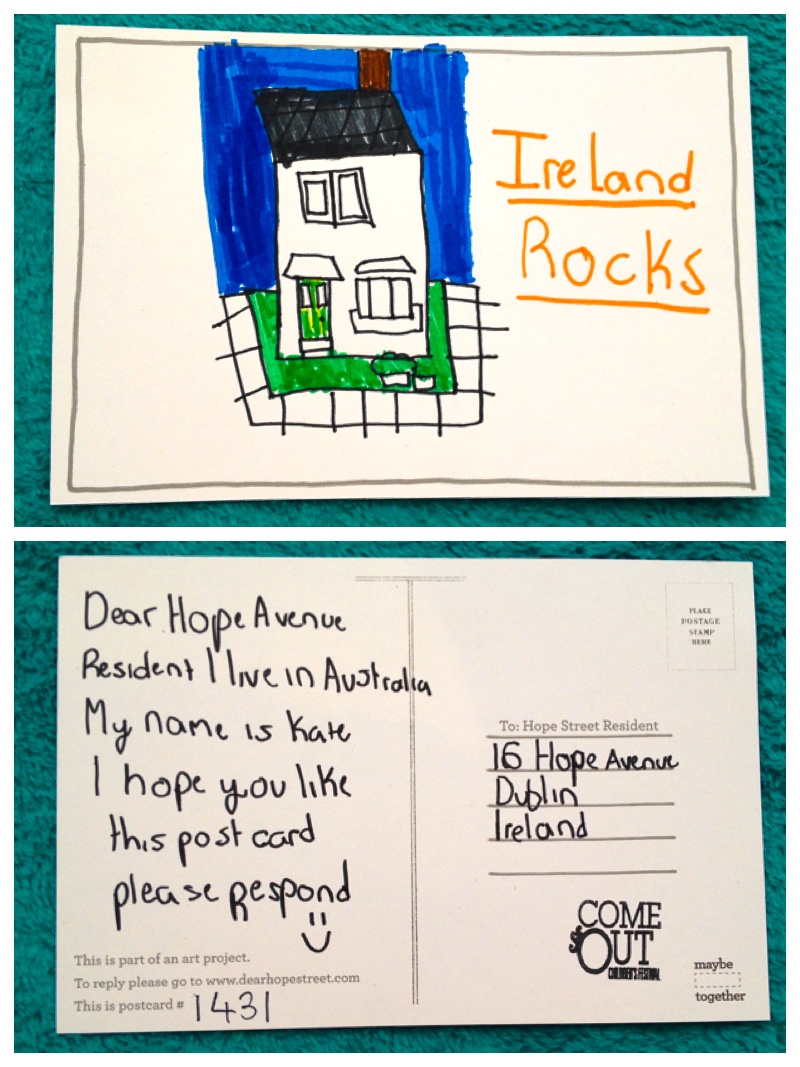 Ireland
Rocks
Dear Hope Avenue
Resident I live in Australia
My name is Kate
I hope you like
this post card
please respond
This is part of an art project.
To reply please go to www.dearhopestreet.com
This is postcard # 1431
PLACE
POSTAGE
STAMP
HERE
To: Hope Street Resident
16 Hope Avenue
Dublin
Ireland
COME
OUT
CHILDREN'S FESTIVAL
maybe
together